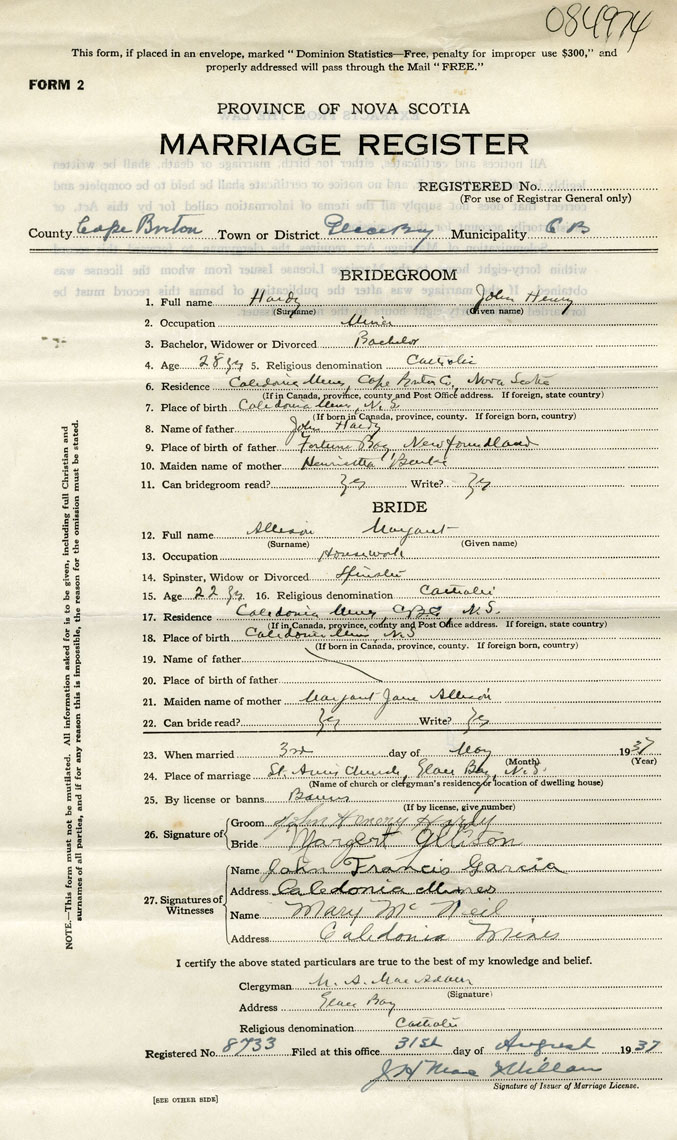 084974
This form, if placed in an envelope, marked "Dominion Statistics—Free, penalty for improper use $300," and
properly addressed will pass through the Mail "FREE."
FORM 2
PROVINCE OF NOVA SCOTIA
MARRIAGE REGISTER
REGISTERED No.
(For use of Registrar General only)
County Cape Breton Town or District Glace Bay Municipality C B
BRIDEGROOM
1. Full name Hardy John Henry
(Surname) (Given name)
2. Occupation Miner
3. Bachelor, Widower or Divorced Bachelor
4. Age 28 yrs 5. Religious denomination Catholic
6. Residence Caledonia Mines, Cape Breton Co., Nova Scotia
(If in Canada, province, county and Post Office address. If foreign, state country)
7. Place of birth Caledonia Mines, N.S.
(If born in Canada, province, county. If foreign born, country)
8. Name of father John Hardy
9. Place of birth of father Fortune Bay Newfoundland
10. Maiden name of mother Henrietta
11. Can bridegroom read? Yes Write? Yes
BRIDE
12. Full name Allison Margaret
(Surname) (Given name)
13. Occupation Housework
14. Spinster, Widow or Divorced Spinster
15. Age 22 yrs 16. Religious denomination Catholic
17. Residence Caledonia Mines, C.B. N.S.
(If in Canada, province, county and Post Office address. If foreign, state country)
18. Place of birth Caledonia Mines N.S
(If born in Canada, province, county. If foreign born, country)
19. Name of father
20. Place of birth of father
21. Maiden name of mother Margaret Jane Allison
22. Can bride read? Yes Write? Yes
23. When married 3rd day of May 1937
(Month) (Year)
24. Place of marriage St. Anns Church, Glace Bay, N.S.
(Name of church or clergyman's residence or location of dwelling house)
25. By license or banns Banns
(If by license, give number)
26. Signature of { Groom John Henery Hardy
Bride Margert Allison
27. Signatures of Witnesses { Name John Francis Garcia
Address Caledonia Mines
Name Mary Mc Neil
Address Caledonia Mines
I certify the above stated particulars are true to the best of my knowledge and belief.
Clergyman M. A. MacAdam
(Signature)
Address Glace Bay
Religious denomination Catholic
Registered No. 8733 Filed at this office 31st day of August 1937
Signature of Issuer of Marriage License.
[SEE OTHER SIDE]
NOTE.—This form must not be mutilated. All information asked for is to be given, including full Christian and
surnames of all parties, and if for any reason this is impossible, the reason for the omission must be stated.